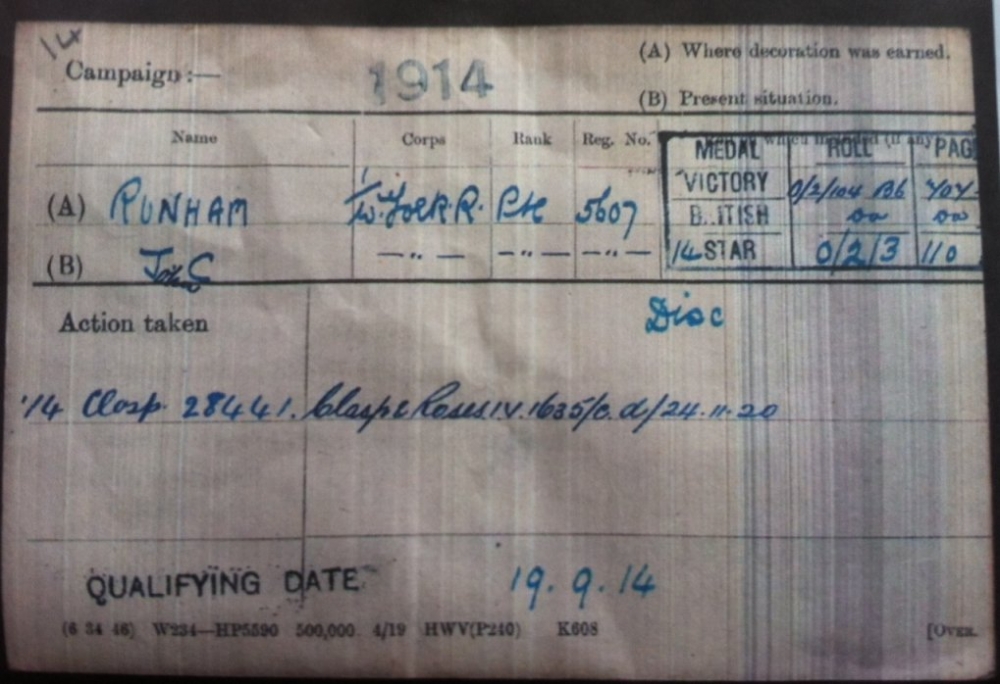 14
Campaign:— 1914 (A) Where decoration was earned.
(B) Present situation.
Name Corps Rank Reg. No. (if any
MEDAL ROLL PAG
(A) RUNHAM W. York R. Pte 5607 VICTORY 0/2/104 B6 704
B..ITISH do do
(B) —"— —"— —"— 14 STAR 0/2/3 110
Action taken Disc
'14 Clasp. 28441. Clasp & Roses IV. 1635/c. d/24.11.20
QUALIFYING DATE 19.9.14
(6 34 46) W234—HP5590 500,000. 4/19 HWV(P240) K608 [OVER.